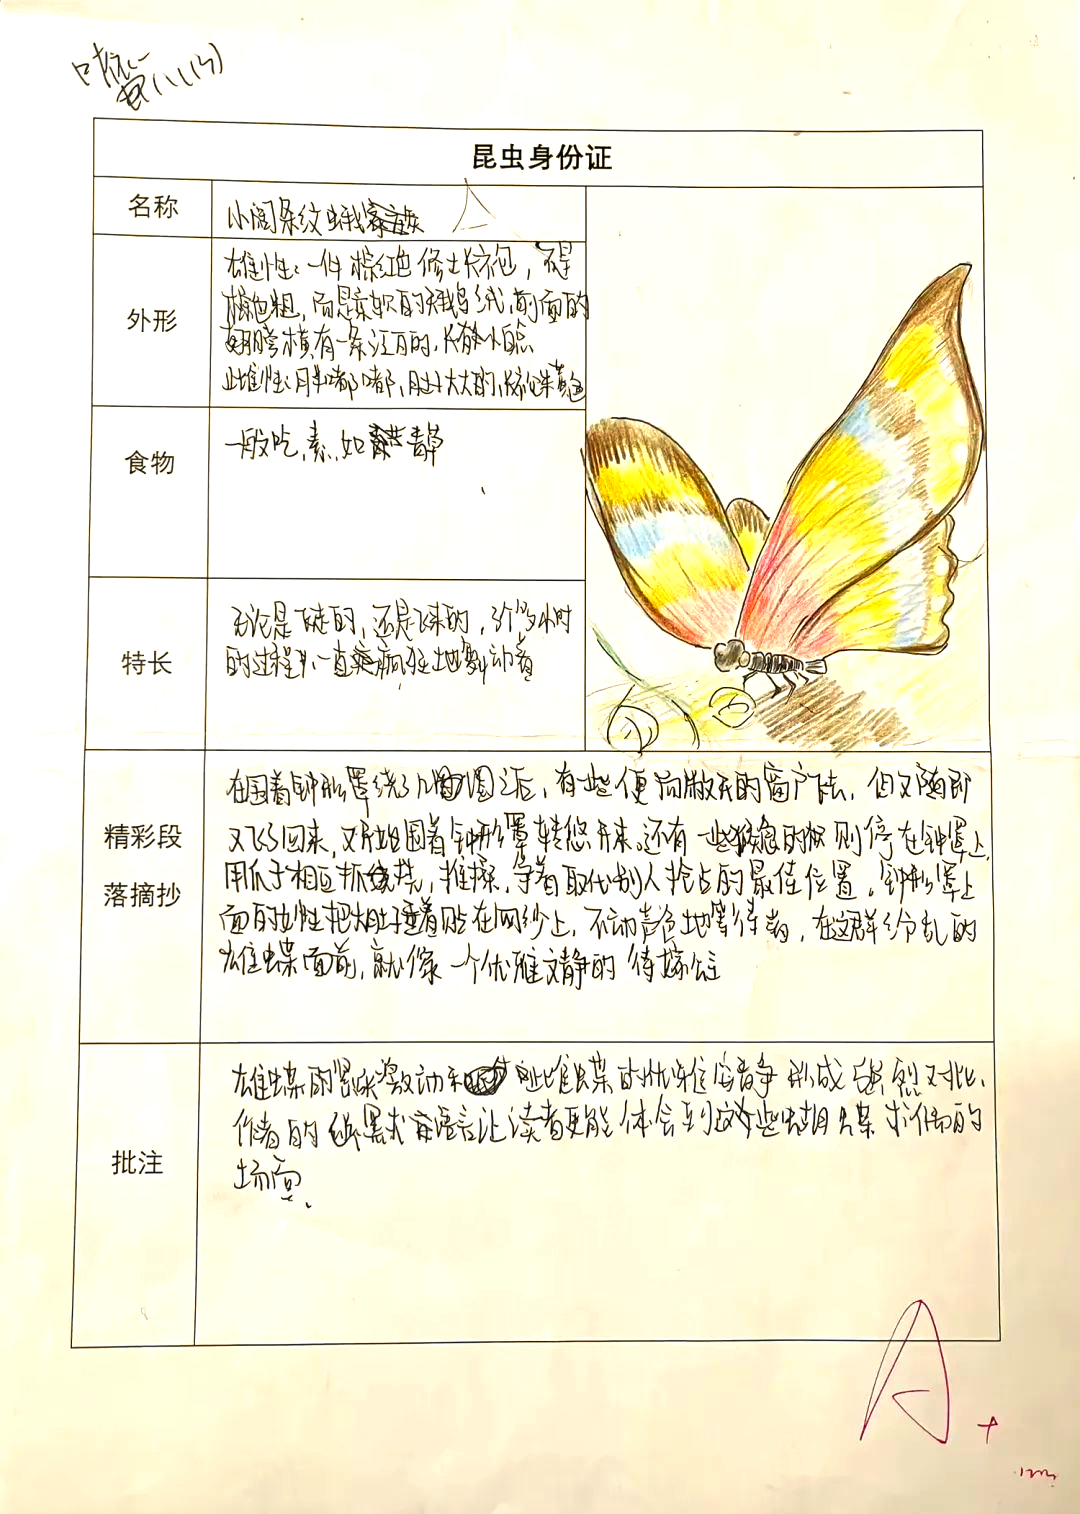 昆虫身份证
名称
小阔条纹蛾
外形
雄性：一件棕红色修士长袍，不是
棕色粗，而是柔软的天鹅绒，前面的
翅膀横有一条泛白的，长有小白点
雌性：胖嘟嘟，肚大大的，长袍朱黄色
食物
一般吃素，如青草
特长
无论是飞走的，还是飞来的，3个多小时
的过程中一直疯狂地舞动着
精彩段
落摘抄
在围着钟形罩绕了几圈之后，有一些便向敞开的窗户飞去，但又随即
又飞了回来，又开始围着钟形罩转悠开来。还有一些猴急的则停在钟罩上，
用爪子相互抓挠，推搡，争着取代别人抢占的最佳位置。钟形罩上
面的女性把大肚垂着贴在网纱上，不动声色地等待着，在这群纷乱的
雄蝶面前，就像一个优雅文静的待嫁公主
批注
雄蝶的紧张激动和雌蝶的优雅安静形成强烈对比，
作者的语言让读者更能体会到这些蝴蝶求偶的
场面。
A+